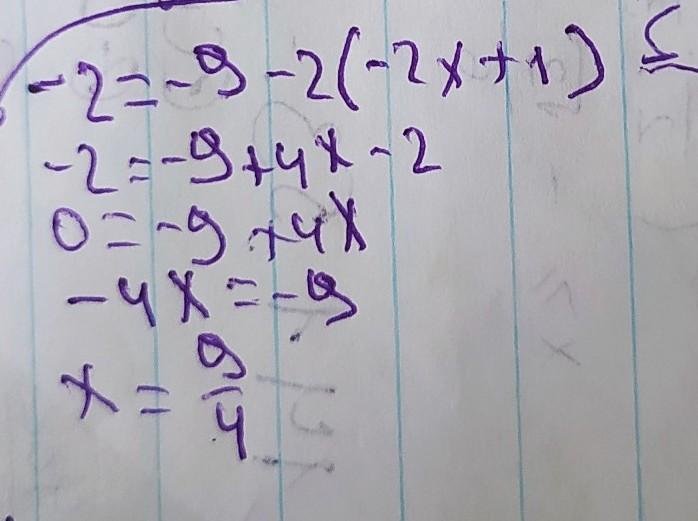 -2=-9-2(-2x+1)
-2=-9+4x-2
0=-9+4x
-4x=-9
x=9/4